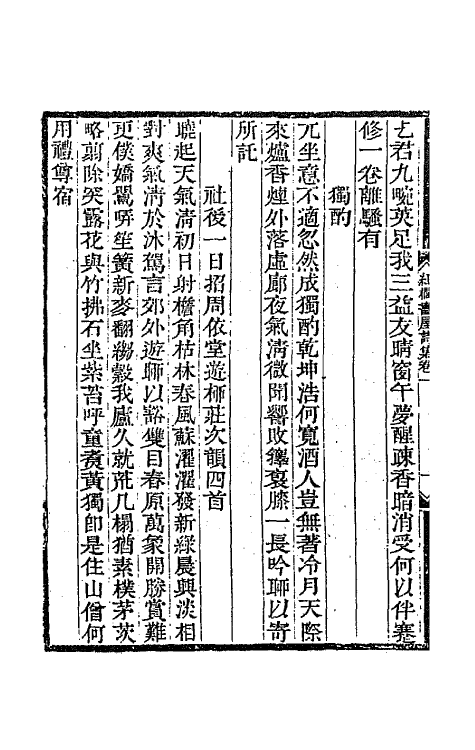 七君九畹英足我三益友晴窗午夢醒疎香暗消受何以伴蹇
修一卷離騷有
獨酌
兀坐意不適忽然成獨酌乾坤浩何寬酒人豈無著冷月天際
來爐香煙外落虛廊夜氣淸微聞響敗籜裛膝一長吟聊以寄
所託
社後一日招周依堂遊柳莊次韻四首
曉起天氣淸初日射檐角枯林春風蘇濯濯發新綠晨興淡相
對爽氣淸於沐駕言郊外遊聊以豁雙目春原萬象開勝賞難
更僕嬌鸎哢笙簧新麥翻縐縠我廬久就荒几榻猶素樸茅茨
略翦除突露花與竹拂石坐紫苔呼童煑黃獨卽是住山僧何
用禮尊宿
書屋詩集卷一